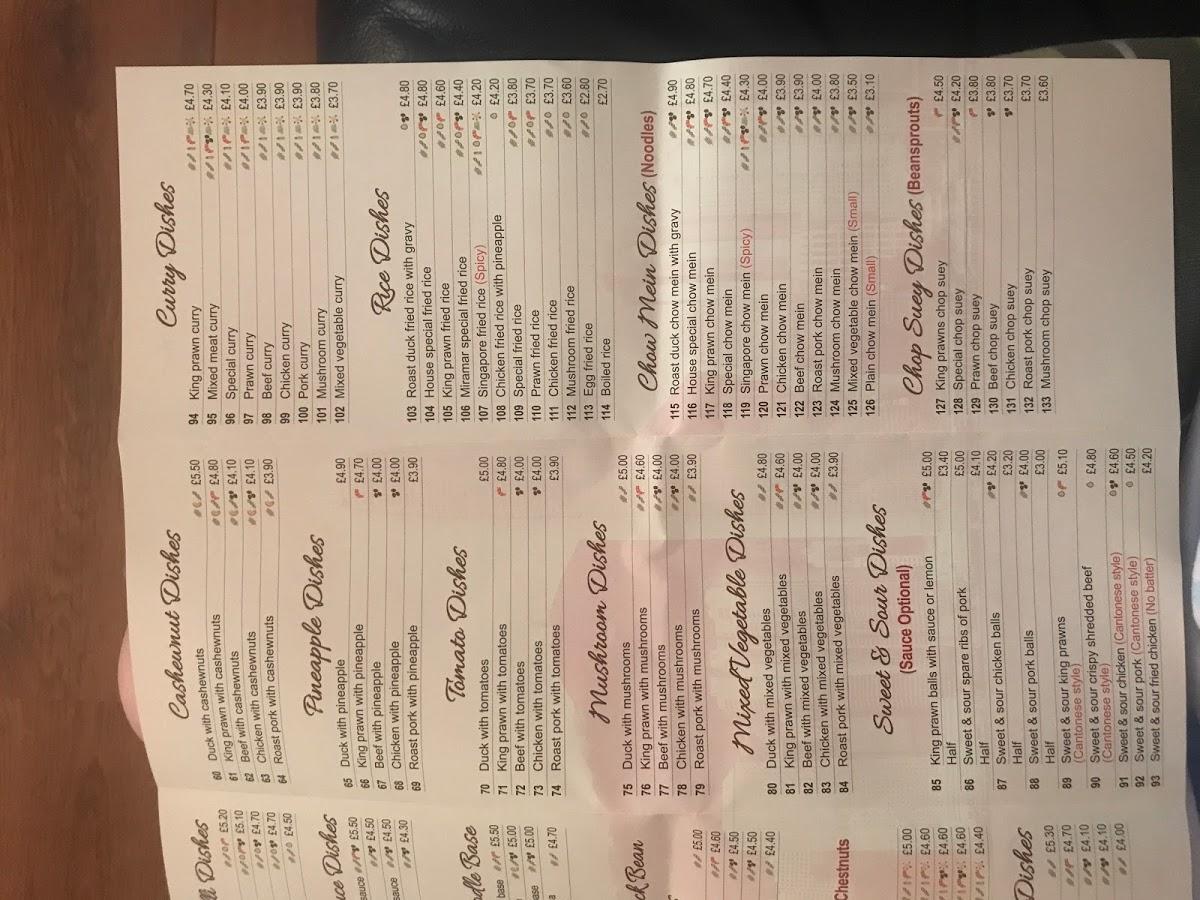 Dishes
£5.20
£5.10
£4.70
£4.70
£4.50
Dishes
sauce £5.50
£4.50
£4.50
sauce £4.30
Base
base £5.50
£5.00
base £5.00
£4.70
Bean
£5.00
£4.60
£4.50
£4.50
£4.40
Chestnuts
£5.00
£4.60
£4.60
£4.60
£4.40
Dishes
£5.30
£4.70
£4.10
£4.10
£4.00
Cashewnut Dishes
60 Duck with cashewnuts £5.50
61 King prawn with cashewnuts £4.80
62 Beef with cashewnuts £4.10
63 Chicken with cashewnuts £4.10
64 Roast pork with cashewnuts £3.90
Pineapple Dishes
65 Duck with pineapple £4.90
66 King prawn with pineapple £4.70
67 Beef with pineapple £4.00
68 Chicken with pineapple £4.00
69 Roast pork with pineapple £3.90
Tomato Dishes
70 Duck with tomatoes £5.00
71 King prawn with tomatoes £4.80
72 Beef with tomatoes £4.00
73 Chicken with tomatoes £4.00
74 Roast pork with tomatoes £3.90
Mushroom Dishes
75 Duck with mushrooms £5.00
76 King prawn with mushrooms £4.60
77 Beef with mushrooms £4.00
78 Chicken with mushrooms £4.00
79 Roast pork with mushrooms £3.90
Mixed Vegetable Dishes
80 Duck with mixed vegetables £4.80
81 King prawn with mixed vegetables £4.60
82 Beef with mixed vegetables £4.00
83 Chicken with mixed vegetables £4.00
84 Roast pork with mixed vegetables £3.90
Sweet & Sour Dishes
(Sauce Optional)
85 King prawn balls with sauce or lemon £5.00
Half £3.40
86 Sweet & sour spare ribs of pork £5.00
Half £4.10
87 Sweet & sour chicken balls £4.20
Half £3.20
88 Sweet & sour pork balls £4.00
Half £3.00
89 Sweet & sour king prawns £5.10
(Cantonese style)
90 Sweet & sour crispy shredded beef £4.80
(Cantonese style)
91 Sweet & sour chicken (Cantonese style) £4.60
92 Sweet & sour pork (Cantonese style) £4.50
93 Sweet & sour fried chicken (No batter) £4.20
Curry Dishes
94 King prawn curry £4.70
95 Mixed meat curry £4.30
96 Special curry £4.10
97 Prawn curry £4.00
98 Beef curry £3.90
99 Chicken curry £3.90
100 Pork curry £3.90
101 Mushroom curry £3.80
102 Mixed vegetable curry £3.70
Rice Dishes
103 Roast duck fried rice with gravy £4.80
104 House special fried rice £4.80
105 King prawn fried rice £4.60
106 Miramar special fried rice £4.40
107 Singapore fried rice (Spicy) £4.20
108 Chicken fried rice with pineapple £4.20
109 Special fried rice £3.80
110 Prawn fried rice £3.70
111 Chicken fried rice £3.70
112 Mushroom fried rice £3.60
113 Egg fried rice £2.80
114 Boiled rice £2.70
Chow Mein Dishes (Noodles)
115 Roast duck chow mein with gravy £4.90
116 House special chow mein £4.80
117 King prawn chow mein £4.70
118 Special chow mein £4.40
119 Singapore chow mein (Spicy) £4.30
120 Prawn chow mein £4.00
121 Chicken chow mein £3.90
122 Beef chow mein £3.90
123 Roast pork chow mein £4.00
124 Mushroom chow mein £3.80
125 Mixed vegetable chow mein (Small) £3.50
126 Plain chow mein (Small) £3.10
Chop Suey Dishes (Beansprouts)
127 King prawns chop suey £4.50
128 Special chop suey £4.20
129 Prawn chop suey £3.80
130 Beef chop suey £3.80
131 Chicken chop suey £3.70
132 Roast pork chop suey £3.70
133 Mushroom chop suey £3.60